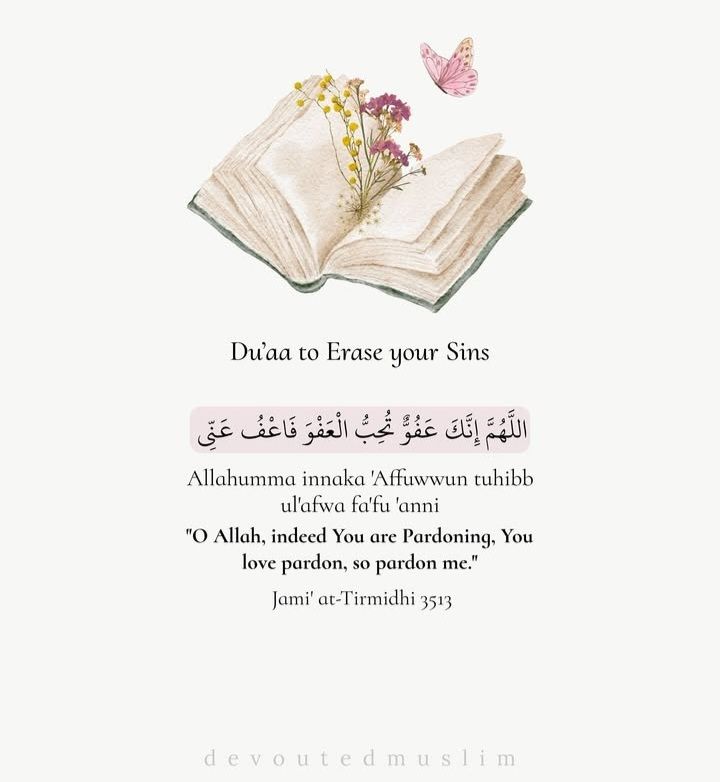 Du'aa to Erase your Sins
اللَّهُمَّ إِنَّكَ عَفُوٌّ تُحِبُّ الْعَفْوَ فَاعْفُ عَنِّى
Allahumma innaka 'Affuwwun tuhibb
ul'afwa fa'fu 'anni
"O Allah, indeed You are Pardoning, You
love pardon, so pardon me."
Jami' at-Tirmidhi 3513
devoutedmuslim